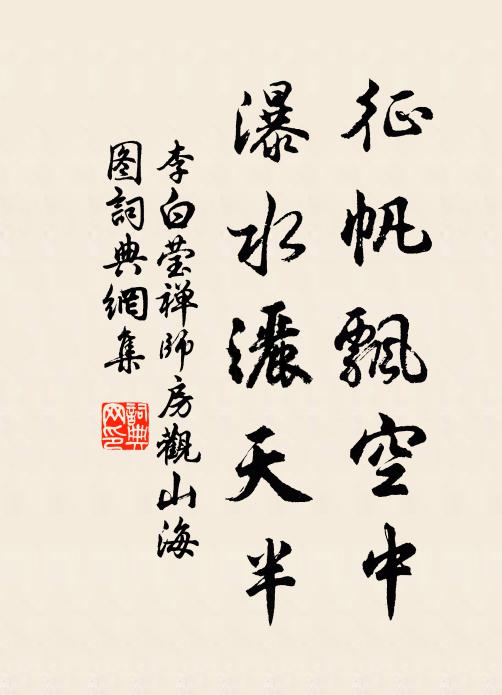 征帆飄空中
瀑水灑天半
李白莹禅師房觀山海
图詞典網集
詞典网印